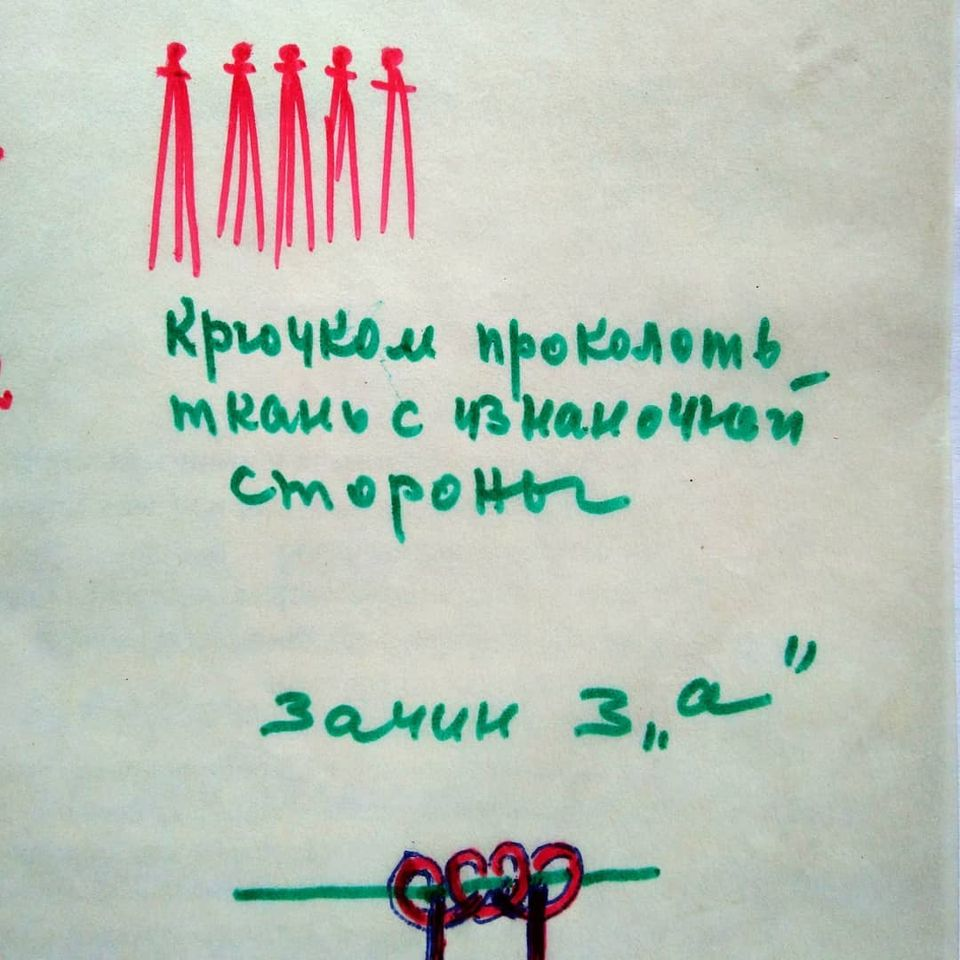 Крючком проколоть
ткань с изнаночной
стороны
Зачин 3 „а"